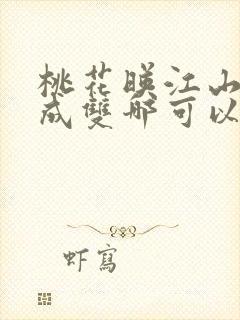 桃花映江山
成雙那可以
虾寫